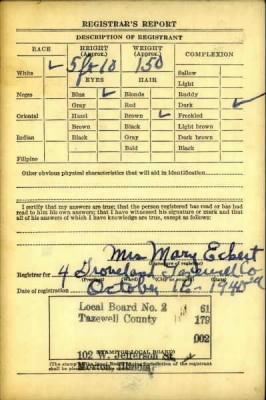 REGISTRAR'S REPORT
DESCRIPTION OF REGISTRANT
RACE HEIGHT (Approx.) WEIGHT (Approx.) COMPLEXION
5 ft 10 150
White Sallow
EYES HAIR Light
Negro Blue Blonde Ruddy
Gray Red Dark
Oriental Hazel Brown Freckled
Brown Black Light brown
Indian Black Gray Dark brown
Bald Black
Filipino
Other obvious physical characteristics that will aid in identification
I certify that my answers are true; that the person registered has read or has had
read to him his own answers; that I have witnessed his signature or mark and that
all of his answers of which I have knowledge are true, except as follows:
Mrs Mary Eckert
Registrar for 4 Groveland Tazewell Co
Date of registration October 16 - 1940
Local Board No. 2 61
Tazewell County 179
002
102 W. Jefferson St.